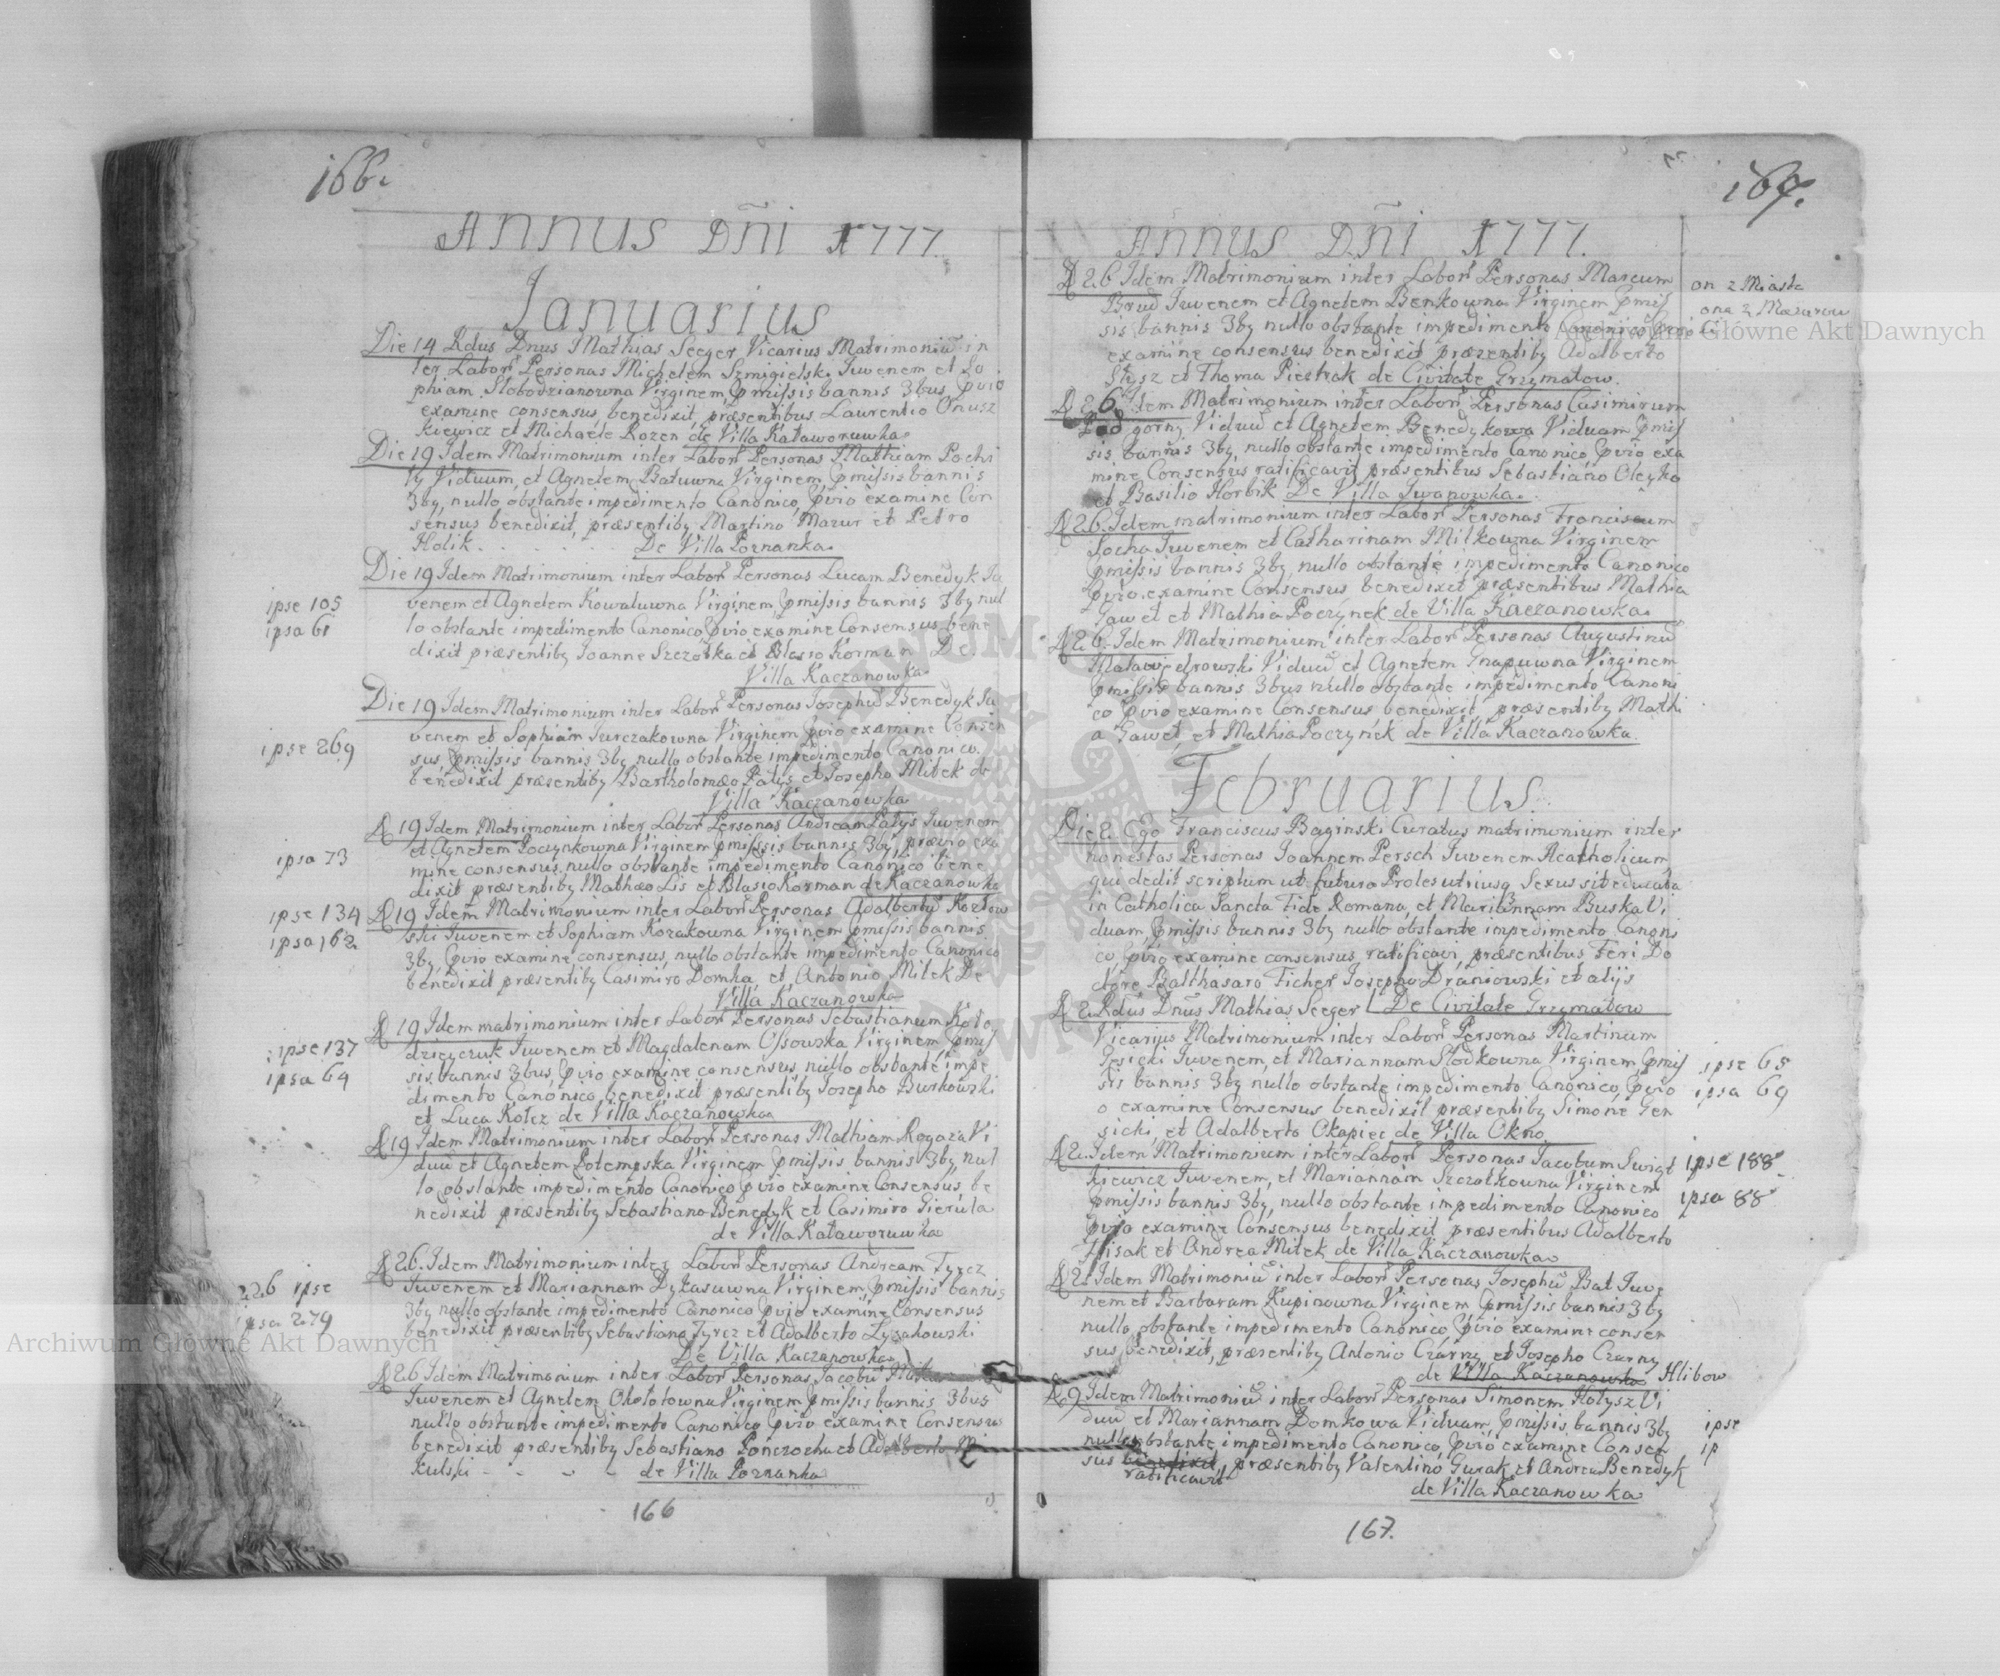 166.
Annus Dñi 1777.
Januarius
Die 14 Rdus Dnus Mathias Seeger Vicarius Matrimoniu in
ter Labor Personas Michelem Szmigielski Juvenem et So
phiam Slobodzianowna Virginem, pmissis bannis 3bus, pvio
examine consensus, benedixit, præsentibus Laurentio Onusz
kiewicz et Michaele Rozen de Villa Kataworuwka.
Die 19 Idem Matrimonium inter Labor Personas Mathiam Pochi
ly Viduum, et Agnetem Batuwna Virginem pmissis bannis
3by, nullo obstante impedimento Canonico, pvio examine Con
sensus benedixit, præsentiby Martino Mazur et Petro
Holik. De Villa Poznanka.
Die 19 Idem Matrimonium inter Labor Personas Lucam Benedyk Ju
ipse 105
venem et Agnetem Kowaluwna Virginem, pmissis bannis 3by nul
ipsa 61
lo obstante impedimento Canonico, pvio examine Consensus, bene
dixit præsentiby Joanne Szczotka et Blasio Korman De
Villa Kaczanowka.
Die 19 Idem Matrimonium inter Labor Personas Josephu Benedyk Ju
venem et Sophiam Jurczakowna Virginem pvio examine Consen
ipse 269
sus, pmissis bannis 3by nullo obstante impedimento Canonico.
benedixit præsentiby Bartholomæo Patys et Josepho Milek de
Villa Kaczanowka
D 19 Idem Matrimonium inter Labor Personas Andream Patys Juvenem
et Agnetem Poczynkowna Virginem pmissis bannis 3by, prævio exa
ipsa 73
mine consensus, nullo obstante impedimento Canonico bene
dixit præsentiby Mathæo Lis et Blasio Korman de Kaczanowka
ipse 134
D 19 Idem Matrimonium inter Labor Personas Adalbertu Kozłow
ipsa 162
ski Juvenem et Sophiam Kozakowna Virginem pmissis bannis
3by, pvio examine consensus, nullo obstante impedimento Canonico
benedixit præsentiby Casimiro Domka, et Antonio Milek De
Villa Kaczanowka
D 19 Idem matrimonium inter Labor Personas Sebastianum Koło
ipse 137
dzieyczuk Juvenem et Magdalenam Ossowska Virginem pmis
ipsa 64
sis bannis 3bus, pvio examine consensus, nullo obstante impe
dimento Canonico, benedixit præsentiby Josepho Burkowski
et Luca Kołcz de Villa Kaczanowka
D 19 Idem Matrimonium inter Labor Personas Mathiam Rogaza Vi
duu et Agnetem Potempska Virginem pmissis bannis 3by, nul
lo obstante impedimento Canonico pvio examine Consensus, be
nedixit præsentiby Sebastiano Benedyk et Casimiro Gierula
de Villa Kataworuwka
D 26. Idem Matrimonium inter Labor Personas Andream Tyrcz
226 ipse
Juvenem et Mariannam Dyłasuwna Virginem, pmissis bannis
ipsa 279
3by nullo obstante impedimento Canonico pvio examine Consensus
benedixit præsentiby Sebastiano Tyrcz et Adalberto Łyzakowski
De Villa Kaczanowka
D 26 Idem Matrimonium inter Labor Personas Jacobu
Juvenem et Agnetem Okołotowna Virginem pmissis bannis 3bus
nullo obstante impedimento Canonico pvio examine Consensus
benedixit præsentiby Sebastiano Ponczocha et Adalberto Mi
kulski de Villa Poznanka
166
167.
Annus Dñi 1777.
D 26 Idem Matrimonium inter Labor Personas Marcum
on z Miasta
Brud Juvenem et Agnetem Benkowna Virginem pmis
ona z Mazurow
sis bannis 3by nullo obstante impedimento Canonico pvio
examine consensus benedixit præsentiby Adalberto
Stysz et Thoma Pietrak de Civitate Grzymałow.
D 26 Idem Matrimonium inter Labor Personas Casimirum
Podgorny Viduu et Agnetem Benedykowa Viduam pmis
sis bannis 3by, nullo obstante impedimento Canonico, pvio exa
mine Consensus ratificavit præsentibus Sebastiano Oleyko
et Basilio Horbik De Villa Iwanowka.
D 26. Idem matrimonium inter Labor Personas Franciscum
Socha Juvenem et Catharinam Milkowna Virginem
pmissis bannis 3by, nullo obstante impedimento Canonico
pvio examine Consensus benedixit præsentibus Mathia
Gaweł et Mathia Poczynek de Villa Kaczanowka.
D 26. Idem Matrimonium inter Labor Personas Augustinu
Viduu et Agnetem Gnapuwna Virginem
pmissis bannis 3bus nullo obstante impedimento Canoni
co pvio examine Consensus benedixit præsentiby Mathi
a Gaweł, et Mathia Poczynek de Villa Kaczanowka.
Februarius.
Die 2. Ego Franciscus Baginski Curatus matrimonium inter
honestas Personas Joannem Persch Juvenem Acatholicum
qui dedit scriptum ut futura Proles utriusq Sexus sit educata
in Catholica Sancta Fide Romana, et Mariannam Buska Vi
duam, pmissis bannis 3by nullo obstante impedimento Canoni
co, pvio examine consensus ratificavi, præsentibus Feri Do
ctore Balthasaro Ficher Josepho Draniowski et alijs
De Civitate Grzymałow
D 2. Rdus Dnus Mathias Seeger
Vicarius Matrimonium inter Labor Personas Martinum
Gesicki Juvenem, et Mariannam Słodkowna Virginem, pmis
ipse 65
sis bannis 3by nullo obstante impedimento Canonico, pvio
ipsa 69
o examine Consensus benedixit præsentiby Simone Gen
sicki, et Adalberto Okapiec de Villa Okno
D 2. Idem Matrimonium inter Labor Personas Jacobum Swigt
ipse 188
kiewicz Juvenem, et Mariannam Szczotkowna Virginem
ipsa 88
pmissis bannis 3by, nullo obstante impedimento Canonico
pvio examine Consensus benedixit præsentibus Adalberto
Hisak et Andrea Milek de Villa Kaczanowka
D 2. Idem Matrimoniu inter Labor Personas Josephu Bat Juve
nem et Barbaram Kupinowna Virginem pmissis bannis 3by
nullo obstante impedimento Canonico, pvio examine consen
sus benedixit, præsentiby Antonio Czarny et Josepho Czarny
de Villa Kaczanowka Hlibow
D 9. Idem Matrimoniu inter Labor Personas Simonem Hołysz Vi
duu et Mariannam Domkowa Viduam, pmissis bannis 3by
ipse
nullo obstante impedimento Canonico, pvio examine Consen
ip
sus benedixit, præsentiby Valentino Gurak et Andrea Benedyk
ratificavit
de Villa Kaczanowka
167.
Archiwum Główne Akt Dawnych
Archiwum Główne Akt Dawnych